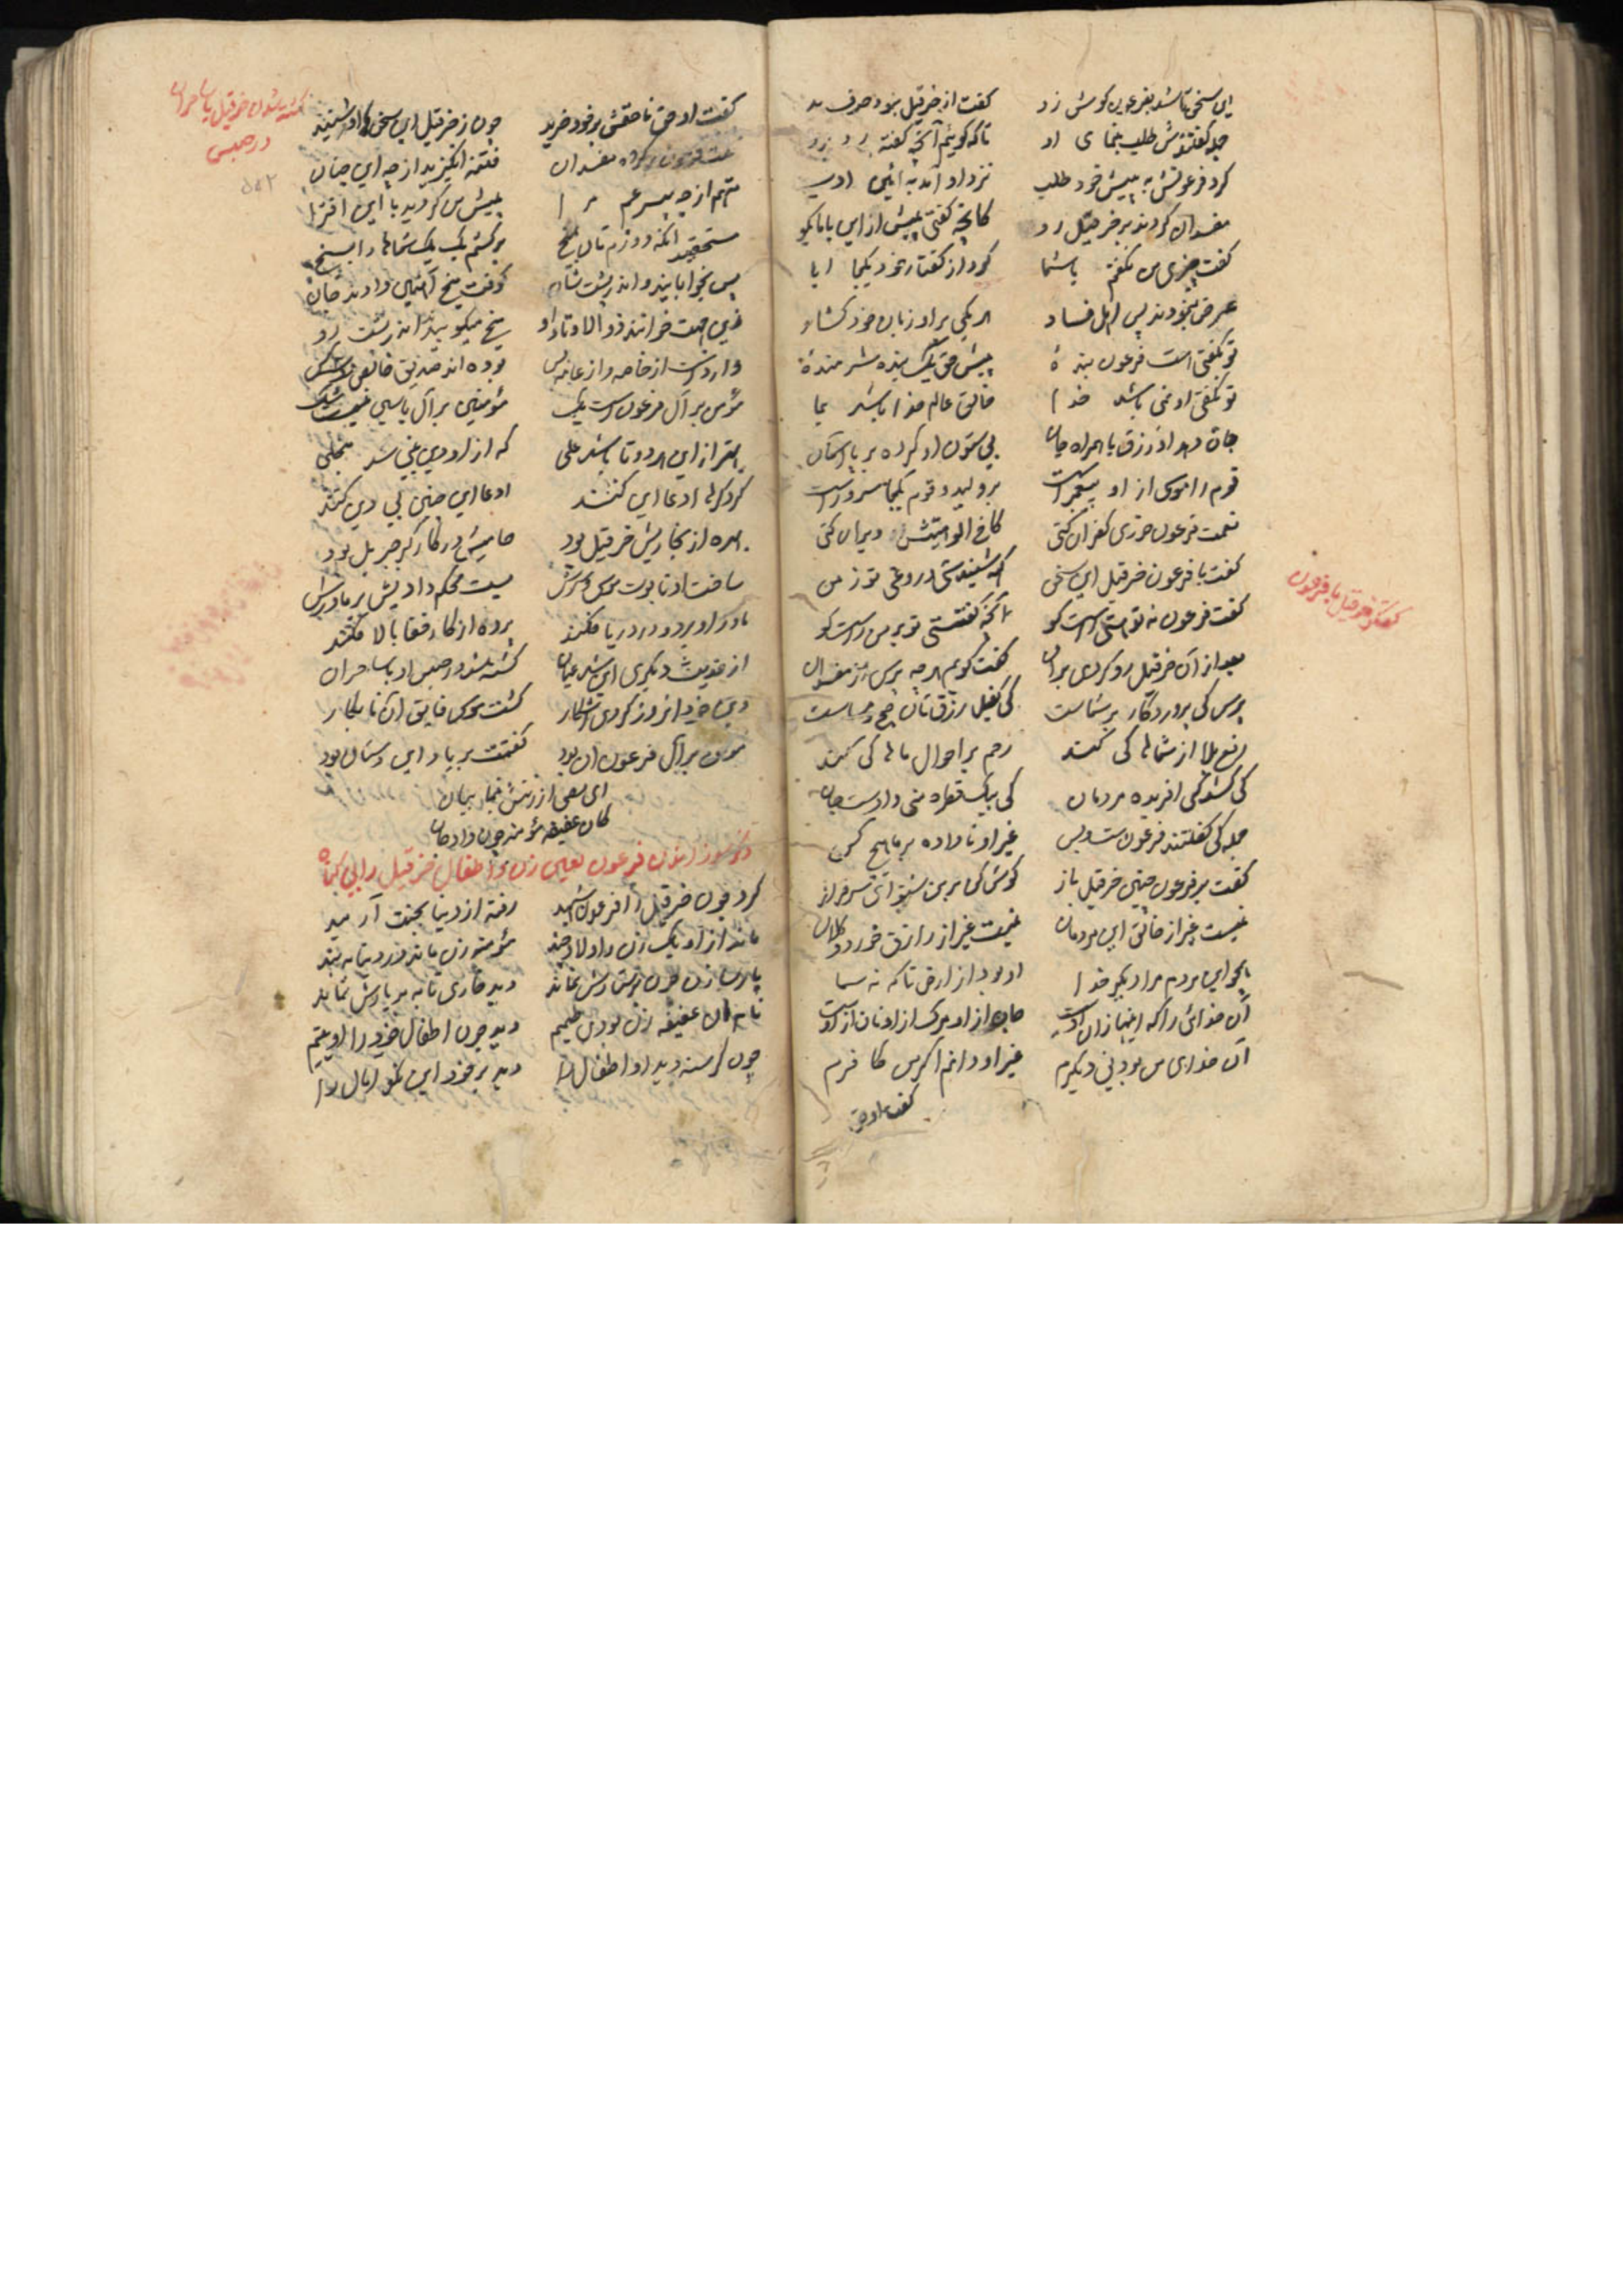 این سخن تا شد بفرعون گوش زد گفت از خرقیل بزد حرف بد
جمله گفتندش طلب بنمای او تا که گویم آنچه گفته
کرد فرعونش به پیش خود طلب نزد او آمد به آئین ادب
مفسدان کردند بر خرقیل رو کانچه گفتی پیش از این با ما بگو
گفت چیزی من نگفتم با شما کرد از گفتار خود یکجا ابا
عرض بنمودند پس اهل فساد هر یکی بر او زبان خود گشاد
تو نگفتی است فرعون بندهٔ پیش حق یک بنده شرمندهٔ
تو نگفتی او نمی باشد خدا خالق عالم خدا باشد بما
جان دهد او رزق با همراه جان بی ستون او کرده بر پا آسمان
قوم را موسی از او پیغمبر است بر ولید و قوم یکجا سرور است
نعمت فرعون خوری کفران کنی کاخ الوهیتش ویران کنی
گفت با فرعون خرقیل این سخن که شنیدستی دروغی تو ز من
گفت فرعون نه تو هستی راست گو آنچه گفتستی تو بر من راست گو
بعد از آن خرقیل رو کردی بر آن گفت گویم هر چه پرس از مفسدان
پرس کی پروردگار بر شماست کی کفیل رزقتان صبح و مساست
رفع بلا از شماها کی کند رحم بر احوال ماها کی کند
کی شد کی آفریده مردمان کی بیک قطره منی دادست جان
جمله کی گفتند فرعونست و بس غیر او نا داده بر ما هیچ کس
گفت بر فرعون چنین خرقیل باز گوش کن بر من شنو ای سرفراز
نیست غیر از خالق این مردمان نیست غیر از رازق خورد و کلان
بجو این مردم مرا دیگر خدا او بود از ارض تا که نه سما
آن خدائی را که اینها زان اوست جان از او مرگ از او نان از اوست
آن خدای من بود نی دیگرم غیر او دانم اگر من کافرم
گفت او حق
گفتگو خرقیل با فرعون
گفت او حق ناحقش بر خود خرید چون ز خرقیل این سخن ها را شنید
مفسدان فتنه انگیزید از چه این چنان
متهم از چه پسر عم مرا پیش من کردید با این افترا
مستحقید آنکه دوزم تان بمیخ بر کشم یک یک شماها را بسیخ
پس بخوابانید و اندر پشتشان کوفت میخ آهنین دادند جان
زین جهت خوانند ذوالاوتاد او میخ میکوبید اندر پشت رو
وارد است از خاصه و از عامه پس بوده اند صدیق خالص سه کس
مؤمن بر آل فرعون است یک مؤمنین بر آل یاسین نیست شک
بهتر از این هر دو تا باشد علی که از او دین نبی شد منجلی
گر دگرها ادعا این کنند ادعا این چنین بی دین کنند
بهره از نجاریش خرقیل بود حامیش در کار گر جبریل بود
ساخت او تابوت موسی بست محکم داد پیش بر مادرش
مادر او برد و در دریا فکند پرده از کار قضا بالا فکند
از حدیث دیگری این شد عیان کشته شد در حبس او با ساحران
دین خود آنروز کردی آشکار گشت موسی فایق آن نابکار
مؤمن بر آل فرعون آن بود گفتمت بر یاد این دستان بود
ای سعی از زنش بنما بیان
کان عفیفه مؤمنه چون داد جان
ذکر سوزانیدن فرعون لعین زن و اطفال خرقیل را بی گناه
کرد چون خرقیل را فرعون شهید رفته از دنیا بجنت آرمید
ماند از او یک زن و اولاد چند مؤمنه زن ماند در دنیا به بند
پارسا زن چون پرستارش نماند دید
نام آن عفیفه زن بودی حلیم دید چون اطفال خود را او یتیم
چون گرسنه دید او اطفال را دید بر خود این نکو امال را
کشته شدن خرقیل با ساحران
در حبس